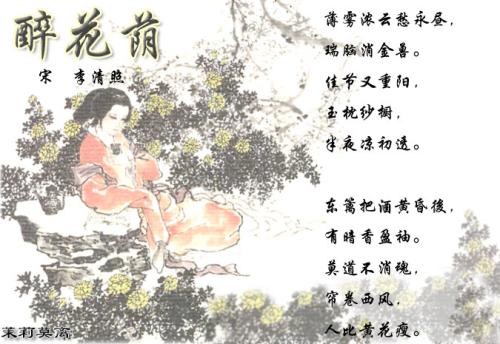 醉花荫
宋 李清照
薄雾浓云愁永昼，
瑞脑消金兽。
佳节又重阳，
玉枕纱橱，
半夜凉初透。
东篱把酒黄昏後，
有暗香盈袖。
莫道不消魂，
帘卷西风，
人比黄花瘦。
茉莉莫离